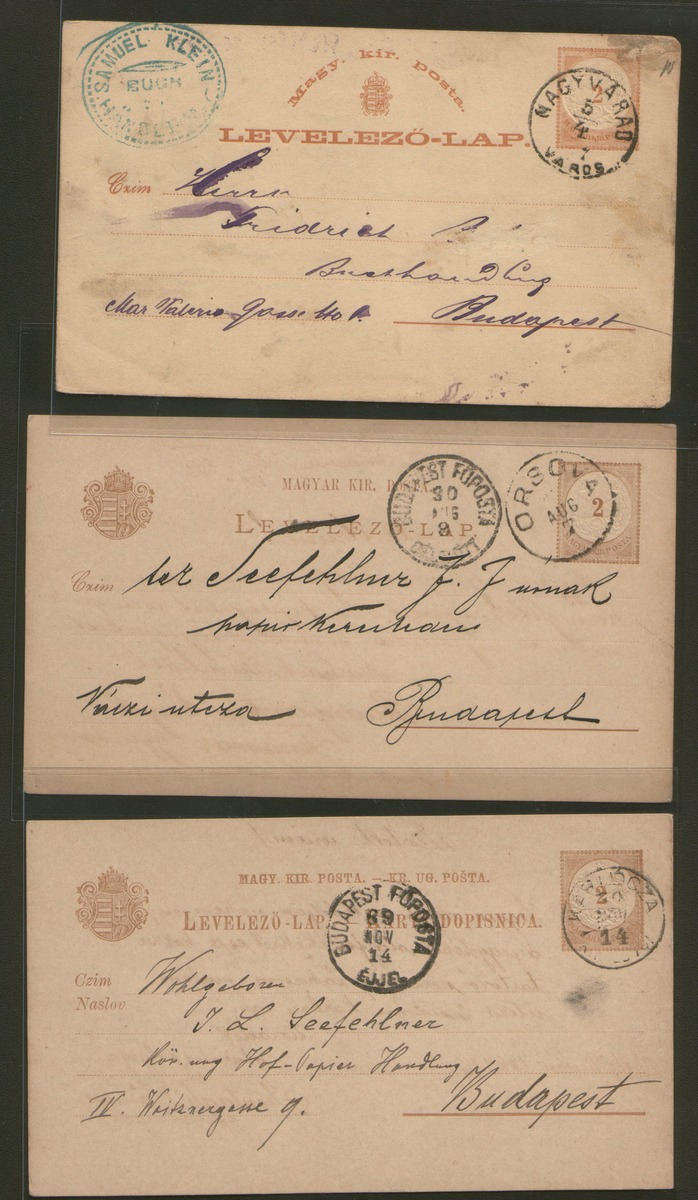 SAMUEL KLEIN
BUCH
HÄNDLER
Magy. kir. posta.
LEVELEZŐ-LAP.
2
NAGYVÁRAD
5
4
7
VÁROS
Czim Herrn
Fridrich
Buchhandlung
Mar Valeria Gasse No
Budapest
MAGYAR KIR. POSTA.
LEVELEZŐ-LAP
BUDAPEST FŐPOSTA
90
AUG
8
ORSOVA
AUG
2
Czim
Seefehlner J. J urnak
Váczi utcza
Budapest
MAGY. KIR. POSTA. – KR. UG. POŠTA.
LEVELEZŐ-LAP – KARTA DOPISNICA.
BUDAPEST FŐPOSTA
89
NOV
14
ÉJJEL
2
NOV
14
Czim
Naslov
Wohlgeboren
J. L. Seefehlner
Kön. ung Hof-Papier Handlung
IV. Waitznergasse 9.
Budapest